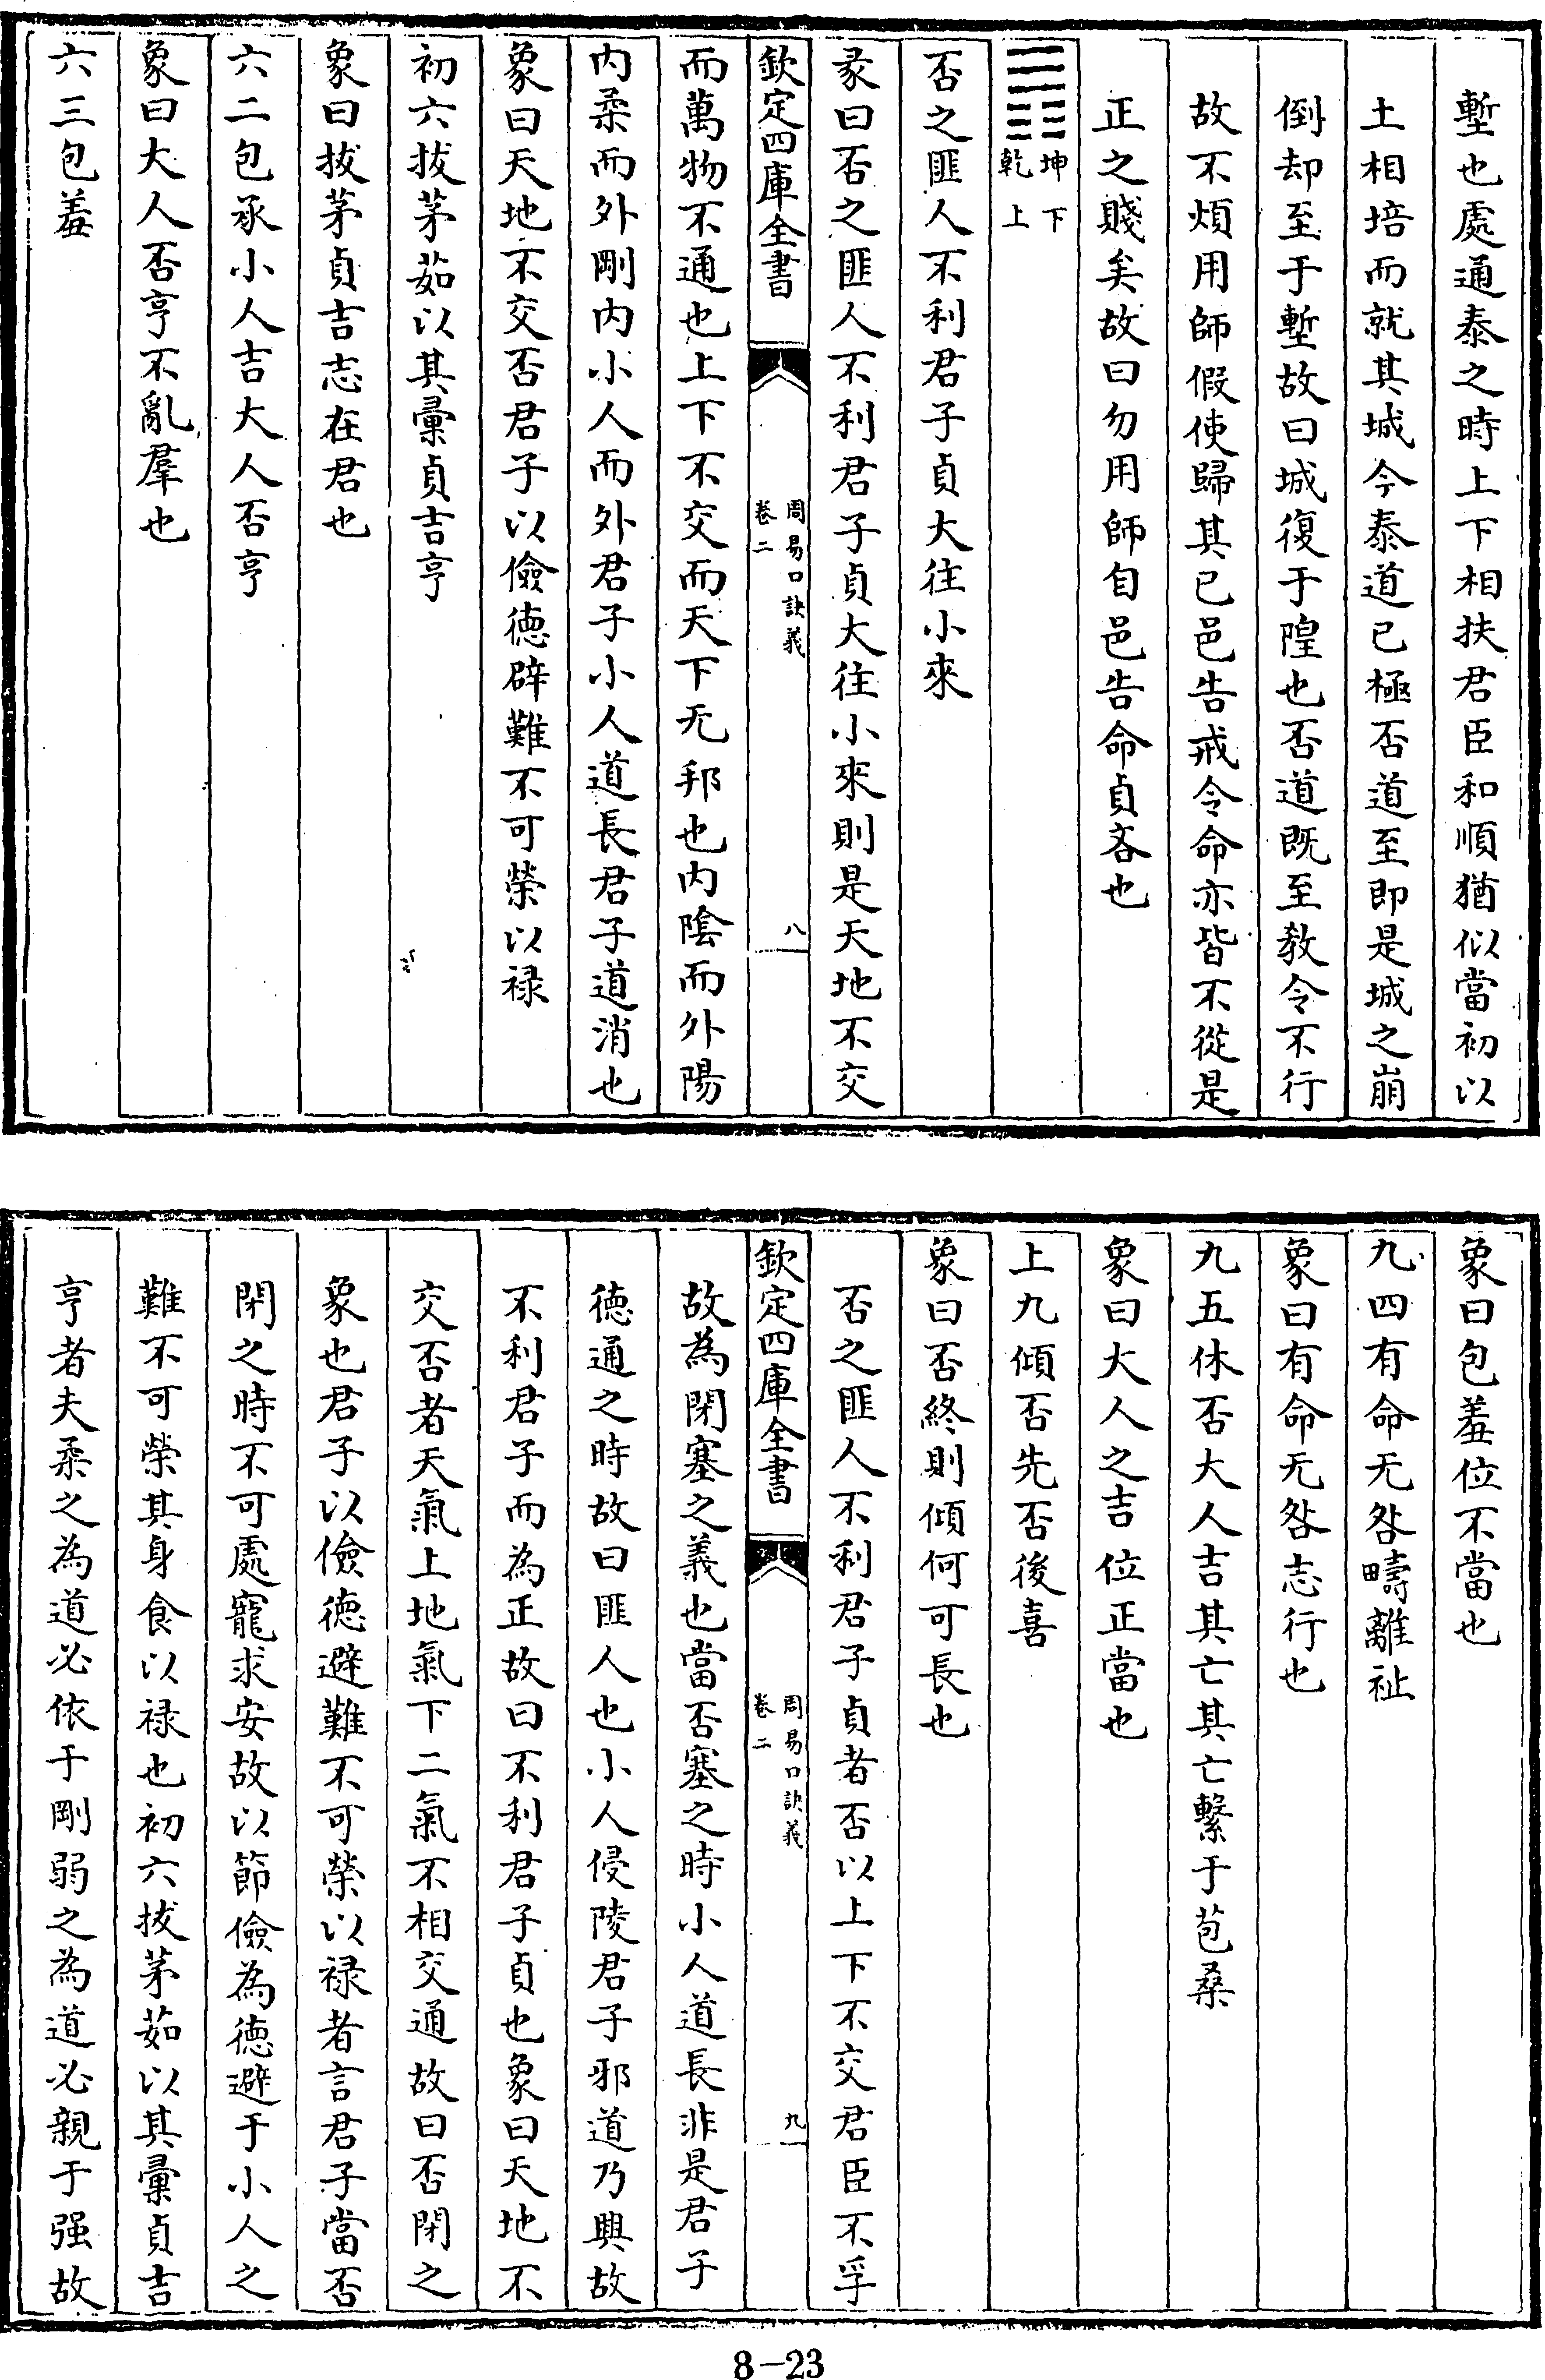 塹也處通泰之時上下相扶君臣和順猶似當初以
土相培而就其城今泰道已極否道至即是城之崩
倒却至于塹故曰城復于隍也否道既至教令不行
故不煩用師假使歸其已邑告戒令命亦皆不從是
正之賤矣故曰勿用師自邑告命貞吝也
坤下
乾上
否之匪人不利君子貞大往小來
彖曰否之匪人不利君子貞大往小來則是天地不交
欽定四庫全書
周易口訣義
卷二
八
而萬物不通也上下不交而天下无邦也内陰而外陽
内柔而外剛内小人而外君子小人道長君子道消也
象曰天地不交否君子以儉徳辟難不可榮以禄
初六拔茅茹以其彚貞吉亨
象曰拔茅貞吉志在君也
六二包承小人吉大人否亨
象曰大人否亨不亂羣也
六三包羞
象曰包羞位不當也
九四有命无咎疇離祉
象曰有命无咎志行也
九五休否大人吉其亡其亡繫于苞桑
象曰大人之吉位正當也
上九傾否先否後喜
象曰否終則傾何可長也
否之匪人不利君子貞者否以上下不交君臣不孚
欽定四庫全書
周易口訣義
卷二
九
故為閉塞之義也當否塞之時小人道長非是君子
徳通之時故曰匪人也小人侵陵君子邪道乃興故
不利君子而為正故曰不利君子貞也象曰天地不
交否者天氣上地氣下二氣不相交通故曰否閉之
象也君子以儉徳避難不可榮以禄者言君子當否
閉之時不可處寵求安故以節儉為徳避于小人之
難不可榮其身食以禄也初六拔茅茹以其彚貞吉
亨者夫柔之為道必依于剛弱之為道必親于强故
8-23